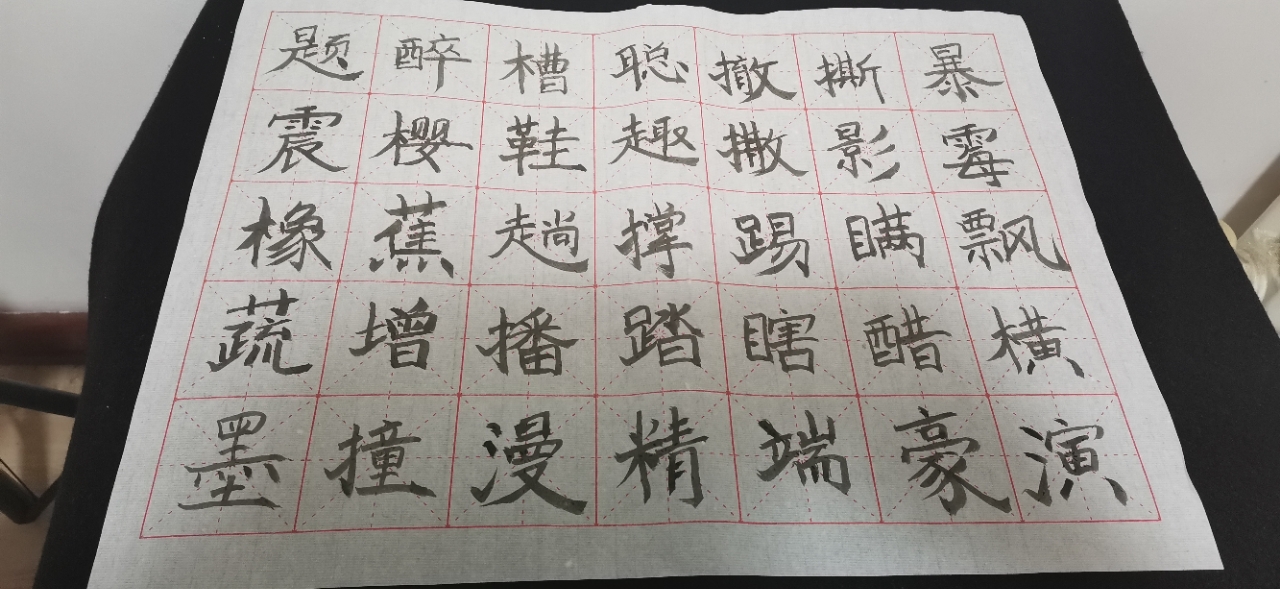 题醉槽聪撤撕暴
震樱鞋趣撒影霉
橡蕉趟撑踢瞒飘
蔬增播踏瞎醋横
墨撞漫精端豪演